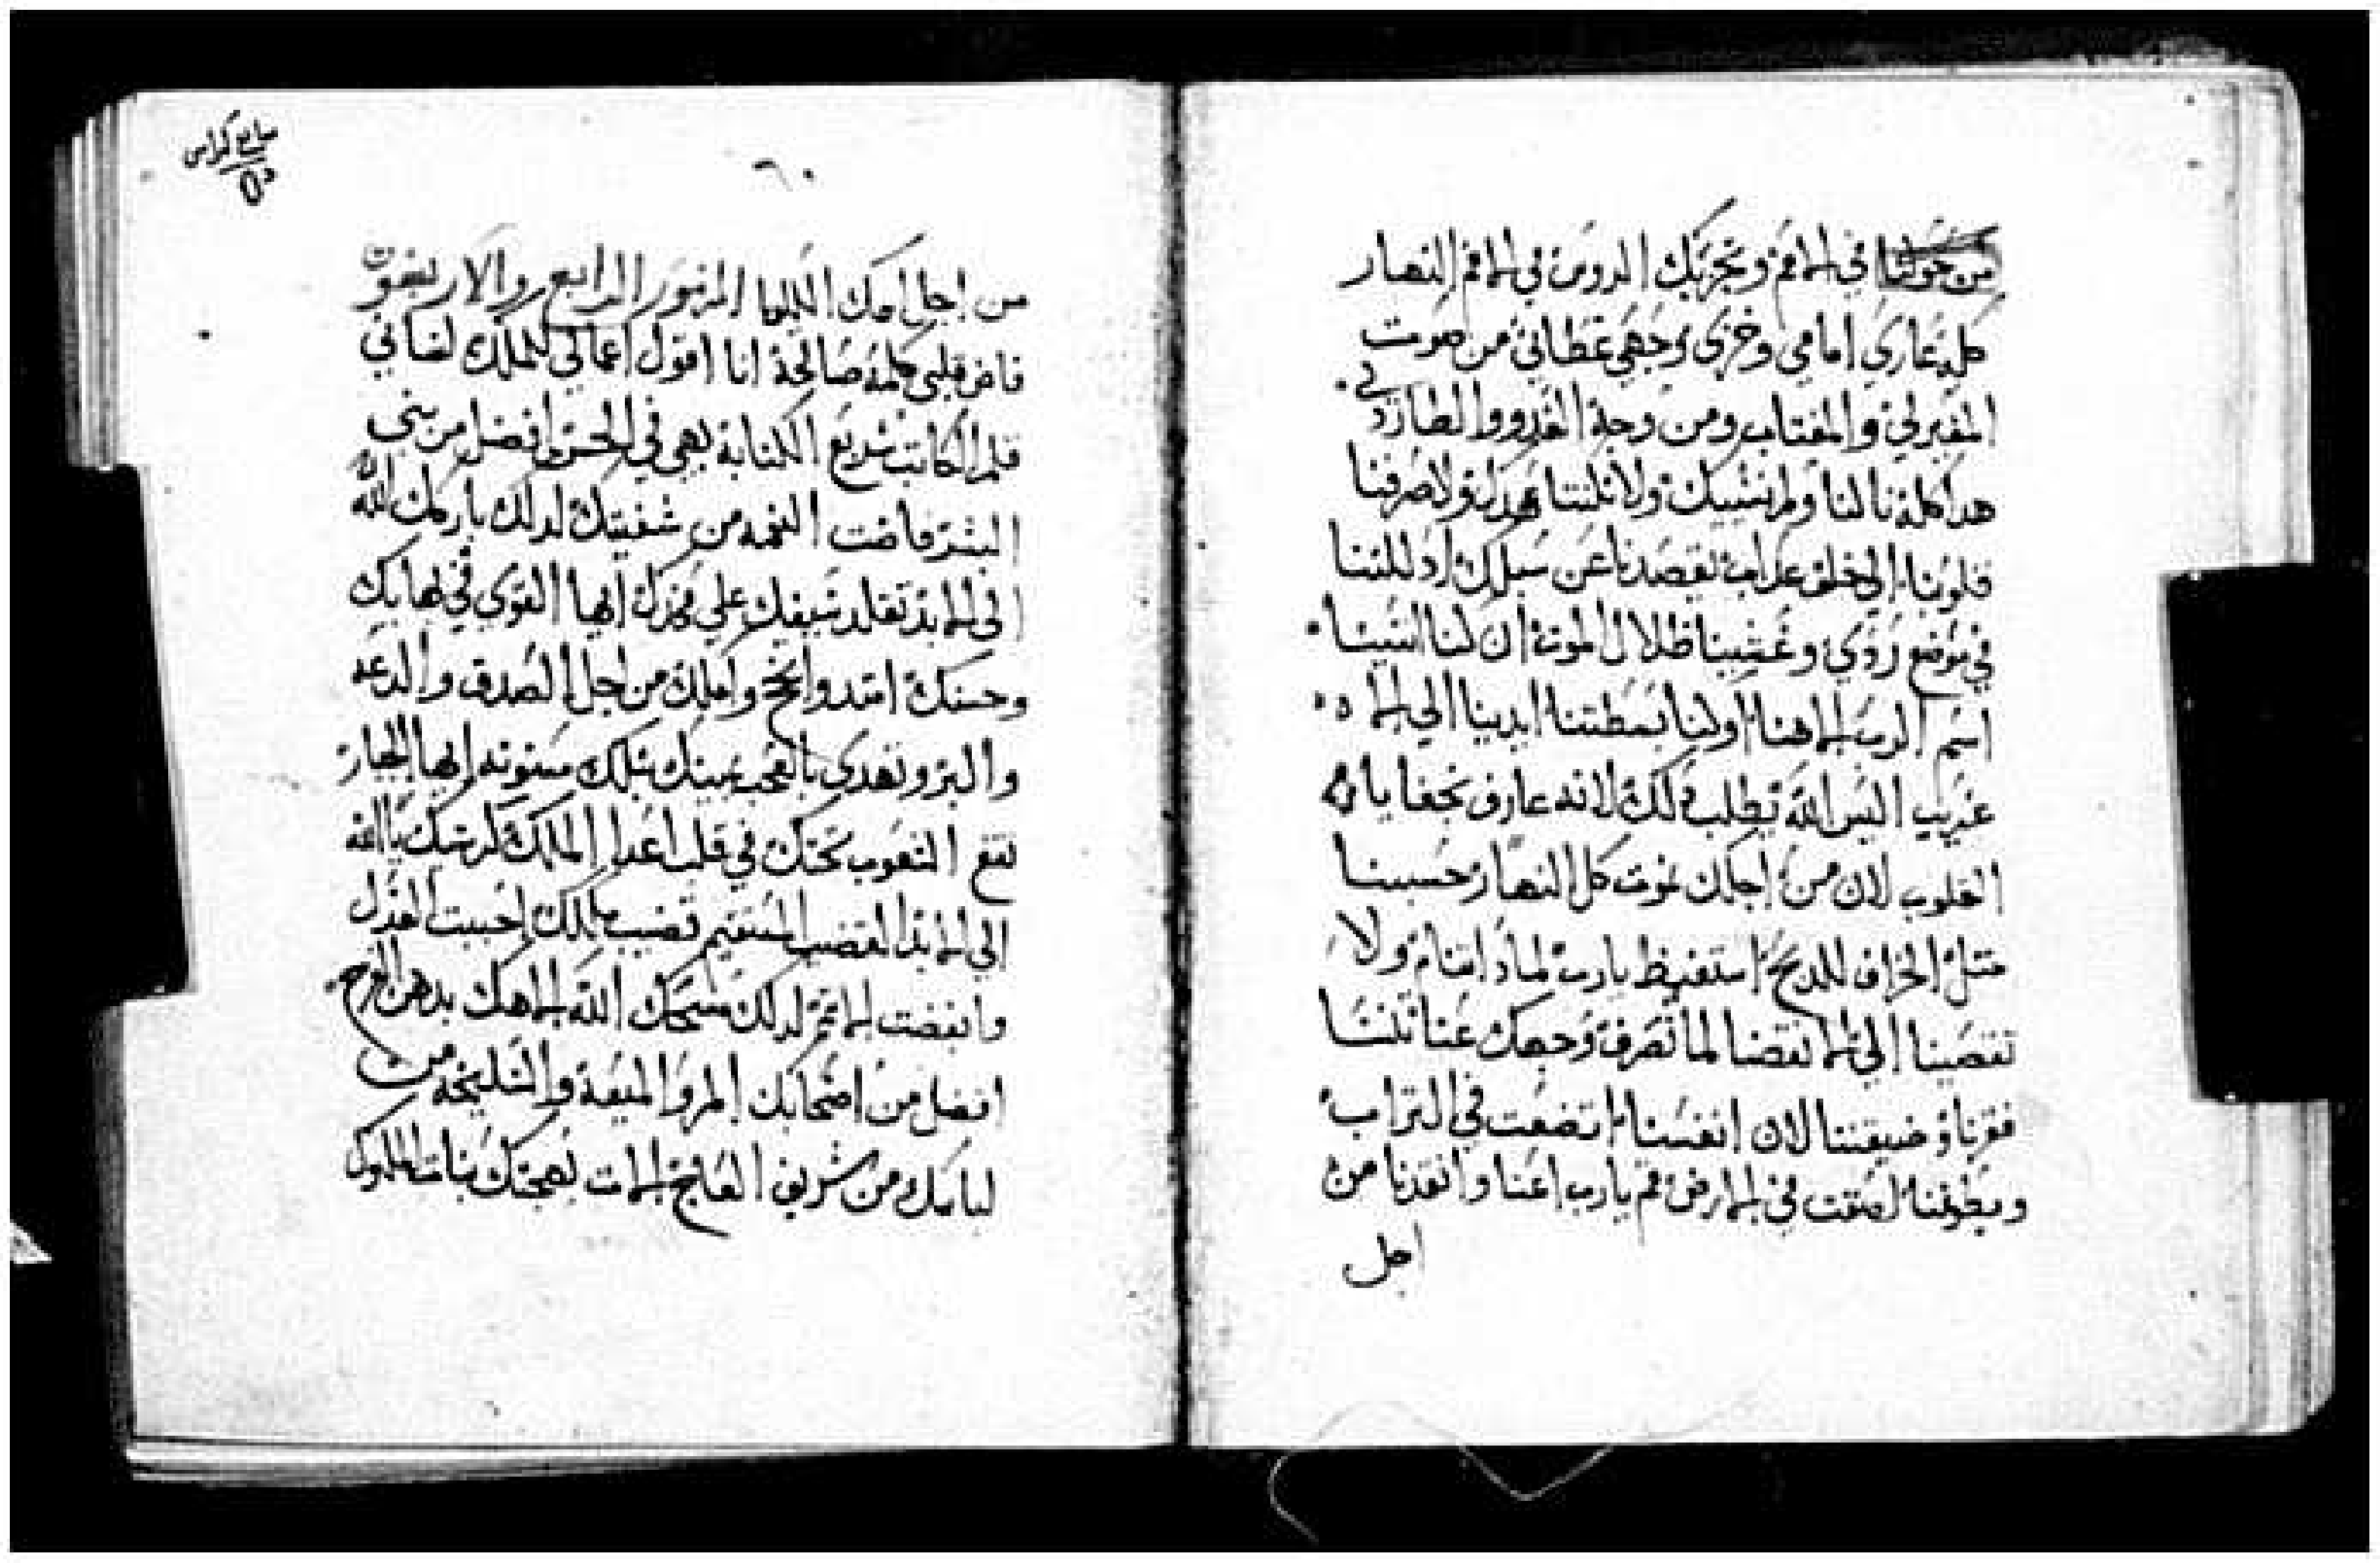 من حولنا في الامم وتحريك الروس في الامم النهار
كله عاري امامي وخزي وجهي غطاني من صوت
المعيرلي والمغتاب ومن وجه العدو والطارد لي
هدا كله نالنا ولم ننسيك ولا نكتنا عهدك ولا صرفنا
قلوبنا الي خلف عدلت بقصدنا عن سبلك اد للتنا
في موضع ردي وغشيتنا ظلال الموت ان كنا انسينا
اسم الرب الاهنا اولنا بسطتنا ايدينا الي اله
غريب اليس الله يطلب دلك لانه عارف بخفايا
القلوب لان من اجلك نموت كل النهار حسبنا
مثل الخراف للدبح استيقظ يارب لمادا تنام ولا
تقصينا الي الانقضا لما تصرف وجهك عنا تنسا
فقرنا وضيقتنا لان انفسنا اتضعت في التراب
وبطوننا لصقت في الارض قم يارب اعنا وانقدنا من
اجل
سابع كراس
٦٠
من اجل اسمك الليلويا المزمور الرابع والاربعون
فاض قلبي كلمة صالحة انا اقول اعمالي للملك لساني
قلم الكاتب سريع الكتابة بهي في الحسن افضل من بني
البشر فاضت النعمه من شفتيك لدلك باركك الله
الي الابد تقلد سيفك علي فخدك ايها القوي في بهايك
وحسنك امتد وانجح واملك من اجل الصدق والدعه
والبر وتهدي بالعجب يمينك نبلك مسنونه ايها الجبار
تقع الشعوب تحتك في قلب اعدا الملك كرسيك ياالله
الي الابد القضيب المستقيم قضيب ملكك احببت العدل
وابغضت الاثم لدلك مسحك الله الاهك بدهن الفرح
افضل من اصحابك المر والميعة والسليخه من
لباسك من شريف العاج الات بهجتك بنات الملوك